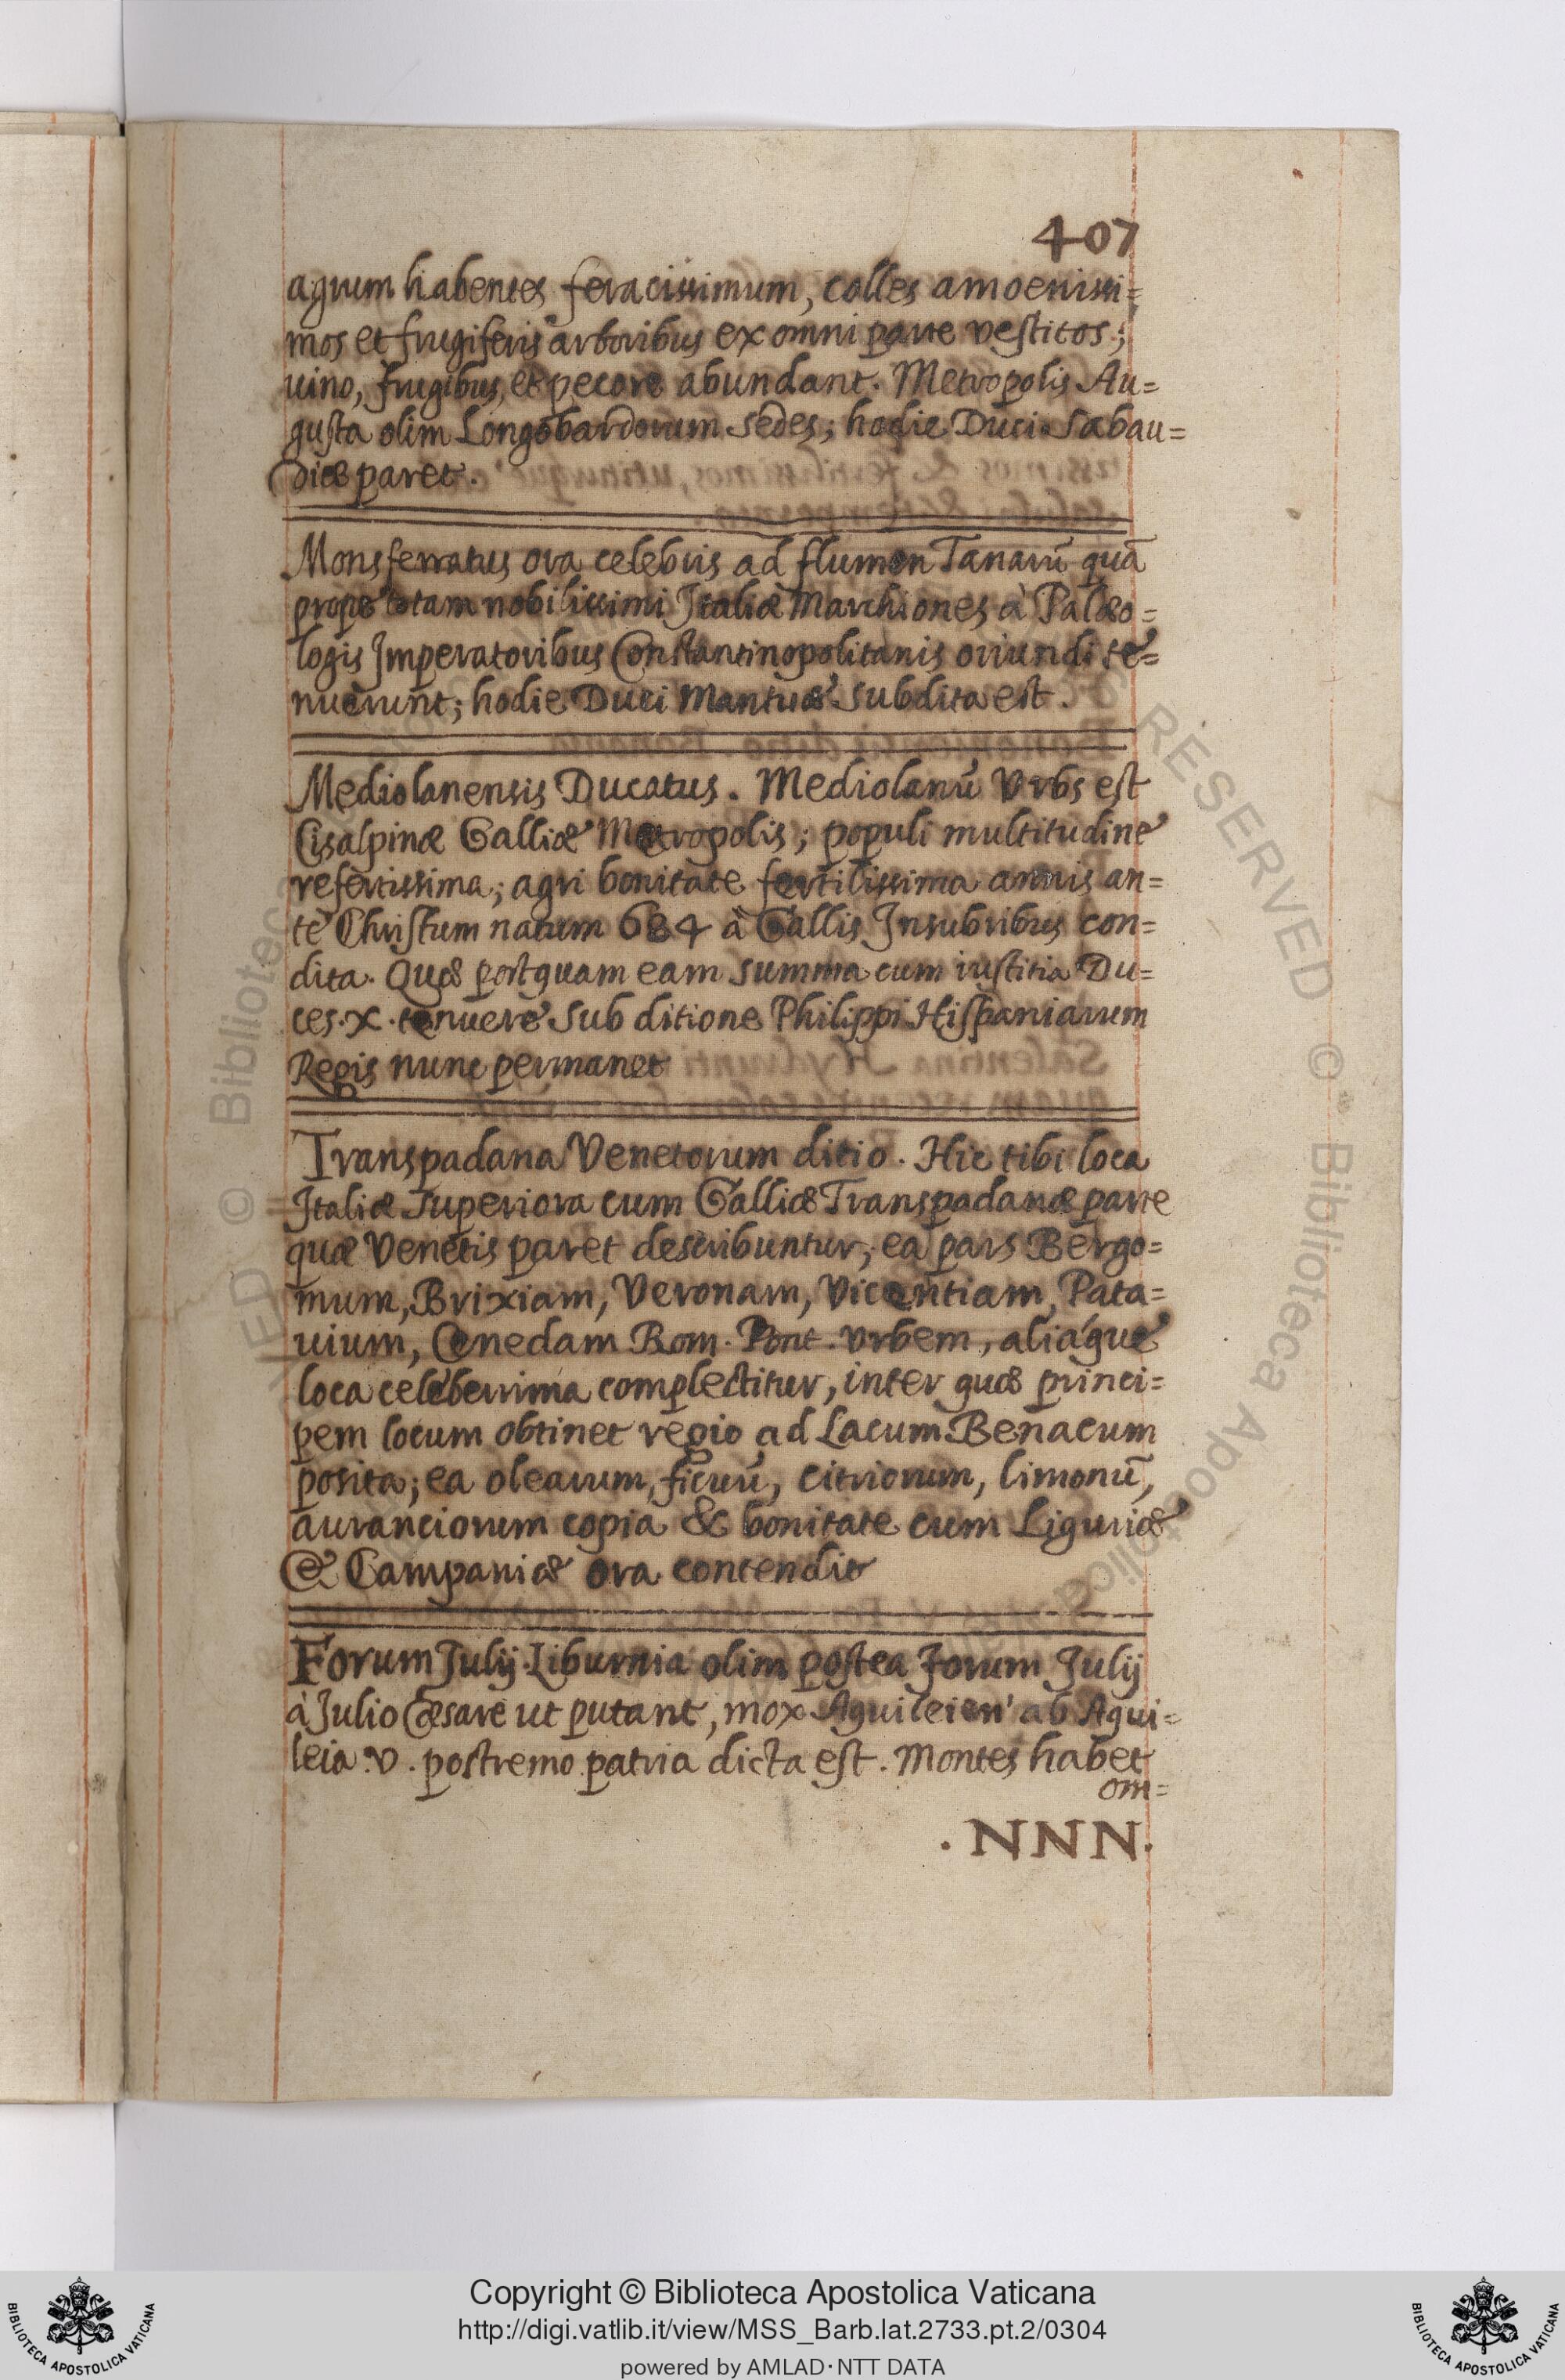 407
agrum habentes feracissimum, colles amoenissi=
mos et frugiferis arboribus ex omni parte vestitos;
uino, frugibus, et pecore abundant. Metropolis Au=
gusta olim Longobardorum sedes; hodie Duci Sabau=
diæ paret.
Monsferratus ora celebris ad flumen Tanarū quā
prope totam nobilissimi Italiæ Marchiones à Palæo=
logis Imperatoribus Constantinopolitanis oriundi te=
nuerunt; hodie Duci Mantuæ subdita est.
Mediolanensis Ducatus. Mediolanū Vrbs est
Cisalpinæ Galliæ Metropolis; populi multitudine
refertissima; agri bonitate fertilissima annis an=
te Christum natum 684 à Gallis Insubribus con=
dita. Quæ postquam eam summa cum iustitia Du=
ces .X. tenuere sub ditione Philippi Hispaniarum
Regis nunc permanet
Transpadana Venetorum ditio. Hic tibi loca
Italiæ superiora cum Galliæ Transpadanæ parte
quæ Venetis paret describuntur; ea pars Bergo=
mum, Brixiam, Veronam, Vicentiam, Pata=
uium, Cenedam Rom. Pont. Vrbem, aliáque
loca celeberrima complectitur, inter quæ princi=
pem locum obtinet regio ad Lacum Benacum
posita; ea olearum, ficuū, citriorum, limonū,
auranciorum copia & bonitate cum Liguriæ
& Campaniæ ora contendit
Forum Julij. Liburnia olim postea Forum Julij
à Julio Cæsare ut putant, mox Aquileien' ab Aqui=
leia .V. postremo patria dicta est. Montes habet
om=
.NNN.
Copyright © Biblioteca Apostolica Vaticana
http://digi.vatlib.it/view/MSS_Barb.lat.2733.pt.2/0304
powered by AMLAD·NTT DATA
BIBLIOTECA APOSTOLICA VATICANA
BIBLIOTECA APOSTOLICA VATICANA